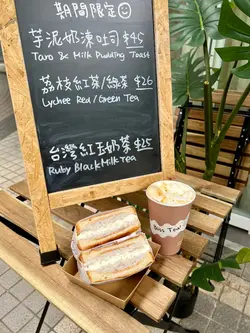 期間限定☺
芋泥奶凍吐司 $45
Taro & Milk Pudding Toast
荔枝紅茶/綠茶 $26
Lychee Red/Green Tea
台灣紅玉奶茶 $25
Ruby Black Milk Tea